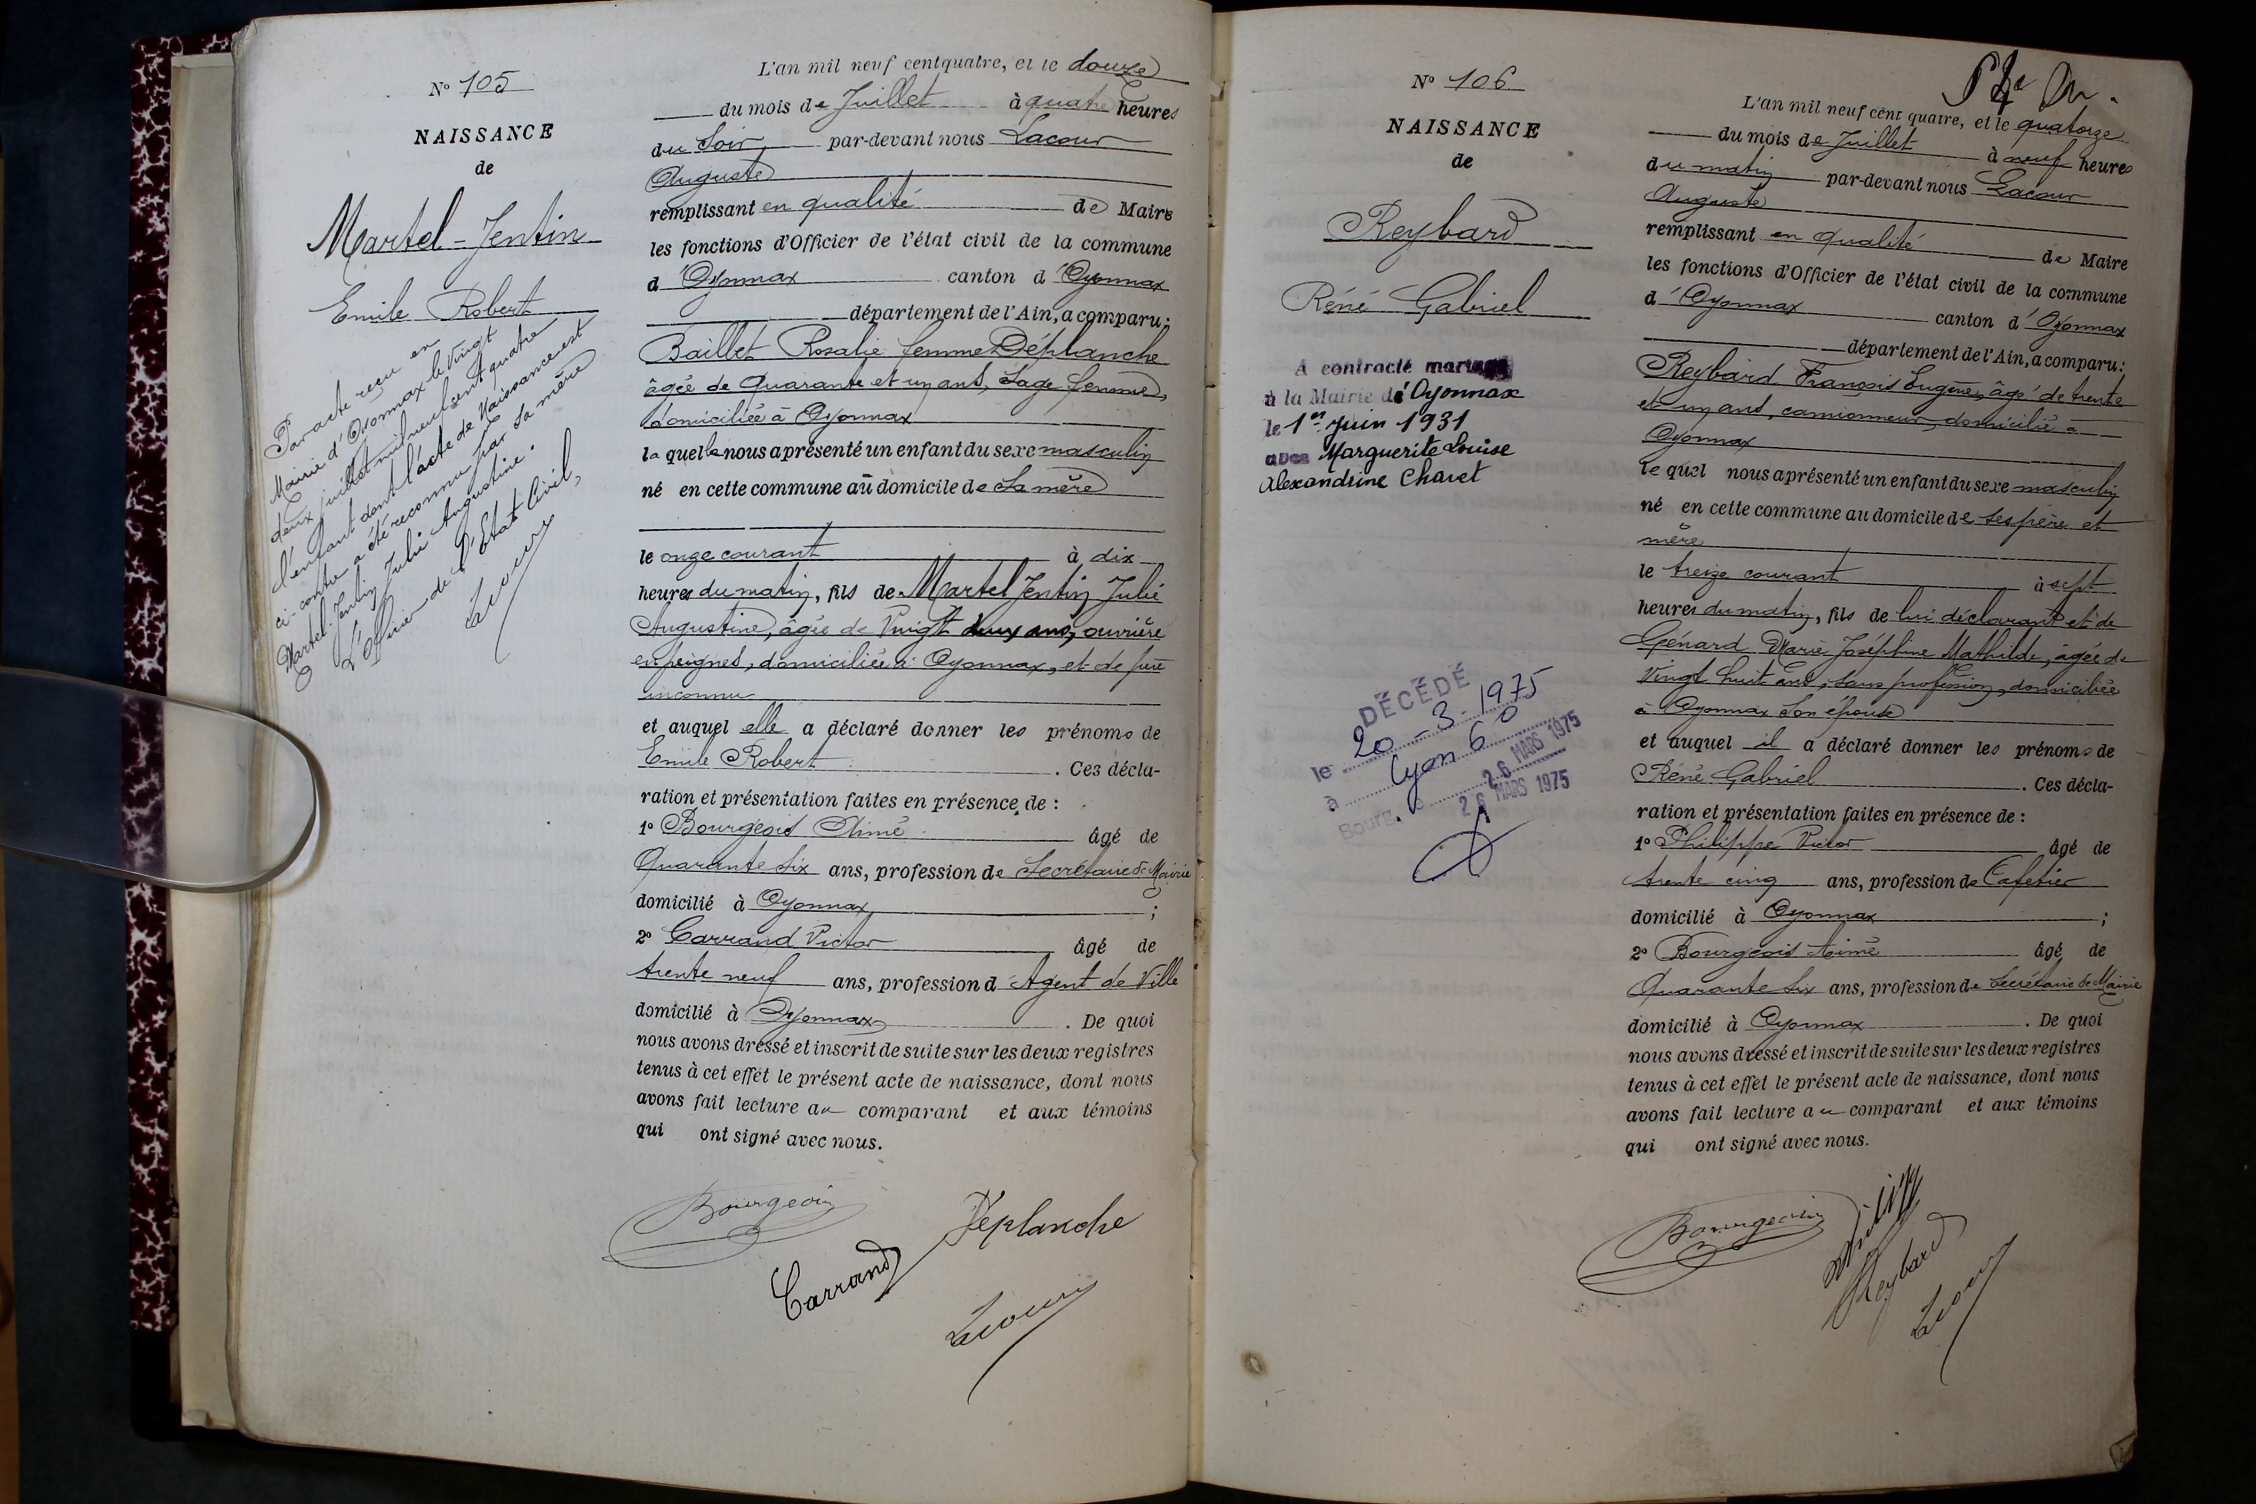 N° 105
NAISSANCE
de
Martel-Jentin
Emile Robert
Par acte reçu en
Mairie d'Oyonnax le vingt
deux juillet mil neuf cent quatre
l'enfant dont l'acte de Naissance est
ci-contre a été reconnu par sa mère
Martel-Jentin Julie Augustine.
L'Officier de l'Etat Civil,
Lacour
L'an mil neuf cent quatre, et le douze
du mois de Juillet à quatre heures
du Soir par-devant nous Lacour
Auguste
remplissant en qualité de Maire
les fonctions d'Officier de l'état civil de la commune
d'Oyonnax canton d'Oyonnax
département de l'Ain, a comparu:
Baillet Rosalie femme Déplanche
âgée de Quarante et un ans, Sage femme,
domiciliée à Oyonnax
laquelle nous a présenté un enfant du sexe masculin
né en cette commune au domicile de Sa mère
le onze courant à dix
heures du matin, fils de Martel Jentin Julie
Augustine, âgée de Vingt deux ans, ouvrière
en peignes, domiciliée à Oyonnax, et de père
inconnu
et auquel elle a déclaré donner les prénoms de
Emile Robert . Ces décla-
ration et présentation faites en présence de :
1° Bourgeois Aimé âgé de
Quarante six ans, profession de Secrétaire de Mairie
domicilié à Oyonnax ;
2° Carrand Victor âgé de
trente neuf ans, profession d'Agent de Ville
domicilié à Oyonnax . De quoi
nous avons dressé et inscrit de suite sur les deux registres
tenus à cet effet le présent acte de naissance, dont nous
avons fait lecture au comparant et aux témoins
qui ont signé avec nous.
Bourgeois
Déplanche
Carrand
Lacour
N° 106
NAISSANCE
de
Reybard
Réné Gabriel
A contracté mariage
à la Mairie d'Oyonnax
le 1er Juin 1931
avec Marguerite Louise
Alexandrine Charet
DÉCÉDÉ
le 20-3-1975
à Lyon 6°
Bourg, 26 MARS 1975
26 MARS 1975
L'an mil neuf cent quatre, et le quatorze
du mois de Juillet à neuf heures
du matin par-devant nous Lacour
Auguste
remplissant en qualité de Maire
les fonctions d'Officier de l'état civil de la commune
d'Oyonnax canton d'Oyonnax
département de l'Ain, a comparu:
Reybard François Eugène, âgé de trente
et un ans, camionneur, domicilié à
Oyonnax
lequel nous a présenté un enfant du sexe masculin
né en cette commune au domicile de ses père et
mère
le treize courant à sept
heures du matin, fils de lui déclarant et de
Génard Marie Joséphine Mathilde, âgée de
Vingt huit ans, sans profession, domiciliée
à Oyonnax son épouse
et auquel il a déclaré donner les prénoms de
Réné Gabriel . Ces décla-
ration et présentation faites en présence de :
1° Philippe Victor âgé de
trente cinq ans, profession de Cafetier
domicilié à Oyonnax ;
2° Bourgeois Aimé âgé de
Quarante six ans, profession de Secrétaire de Mairie
domicilié à Oyonnax . De quoi
nous avons dressé et inscrit de suite sur les deux registres
tenus à cet effet le présent acte de naissance, dont nous
avons fait lecture au comparant et aux témoins
qui ont signé avec nous.
Bourgeois
Reybard
Lacour